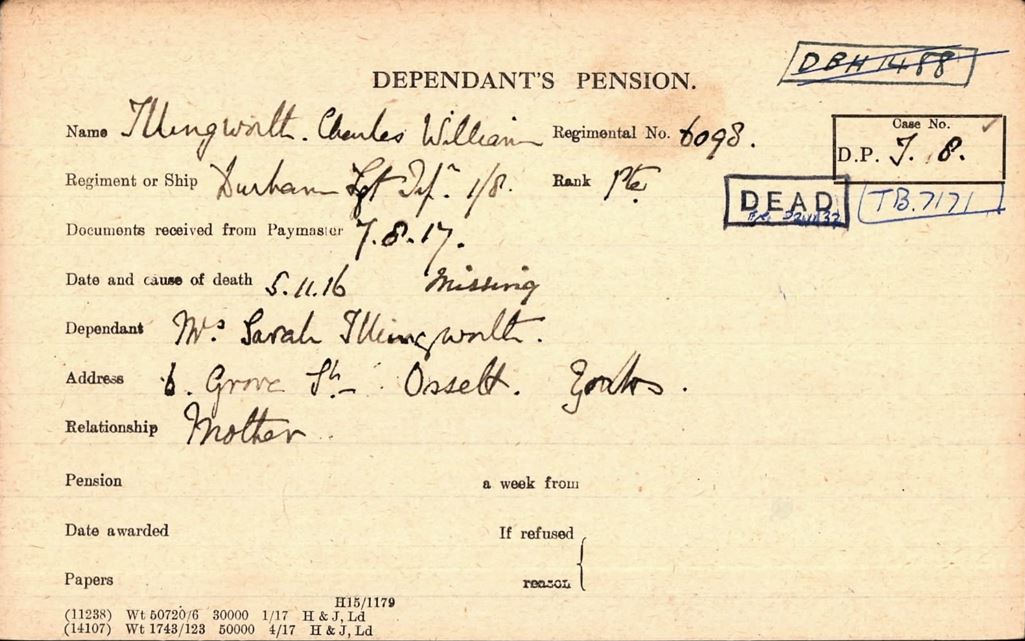 DBH 1488
DEPENDANT'S PENSION.
Name Illingworth. Charles William Regimental No. 6098.
Case No.
D.P. I. 8.
Regiment or Ship Durham Lgt Infn 1/8. Rank Pte
DEAD TB.7171
Documents received from Paymaster 7.8.17.
Date and cause of death 5.11.16 Missing
Dependant Mrs Sarah Illingworth.
Address 6. Grove St. Ossett. Yorks.
Relationship Mother
Pension a week from
Date awarded If refused
Papers reason
H15/1179
(11238) Wt 50720/6 30000 1/17 H & J, Ld
(14107) Wt 1743/123 50000 4/17 H & J, Ld